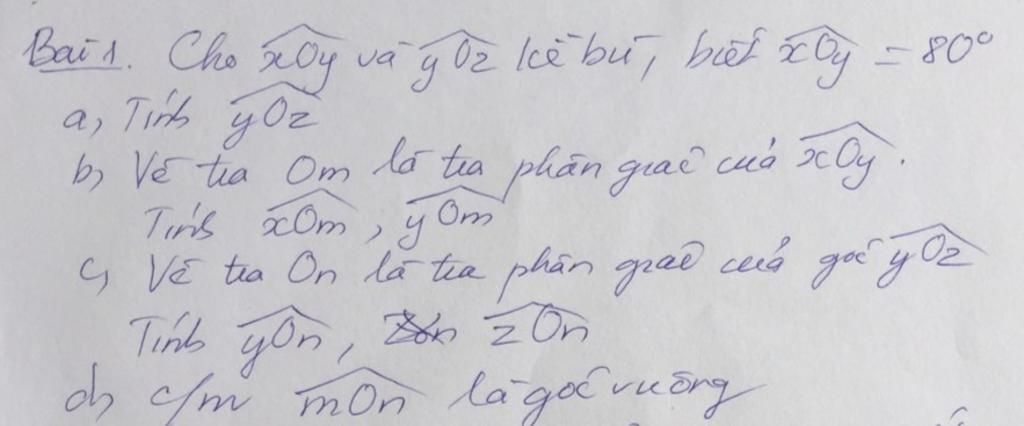 Bài 1. Cho xOy và yOz kề bù, biết xOy = 80°
a, Tính yOz
b, Vẽ tia Om là tia phân giác của xOy.
Tính xOm, yOm
c, Vẽ tia On là tia phân giác của góc yOz
Tính yOn, zOn
d, c/m mOn là góc vuông